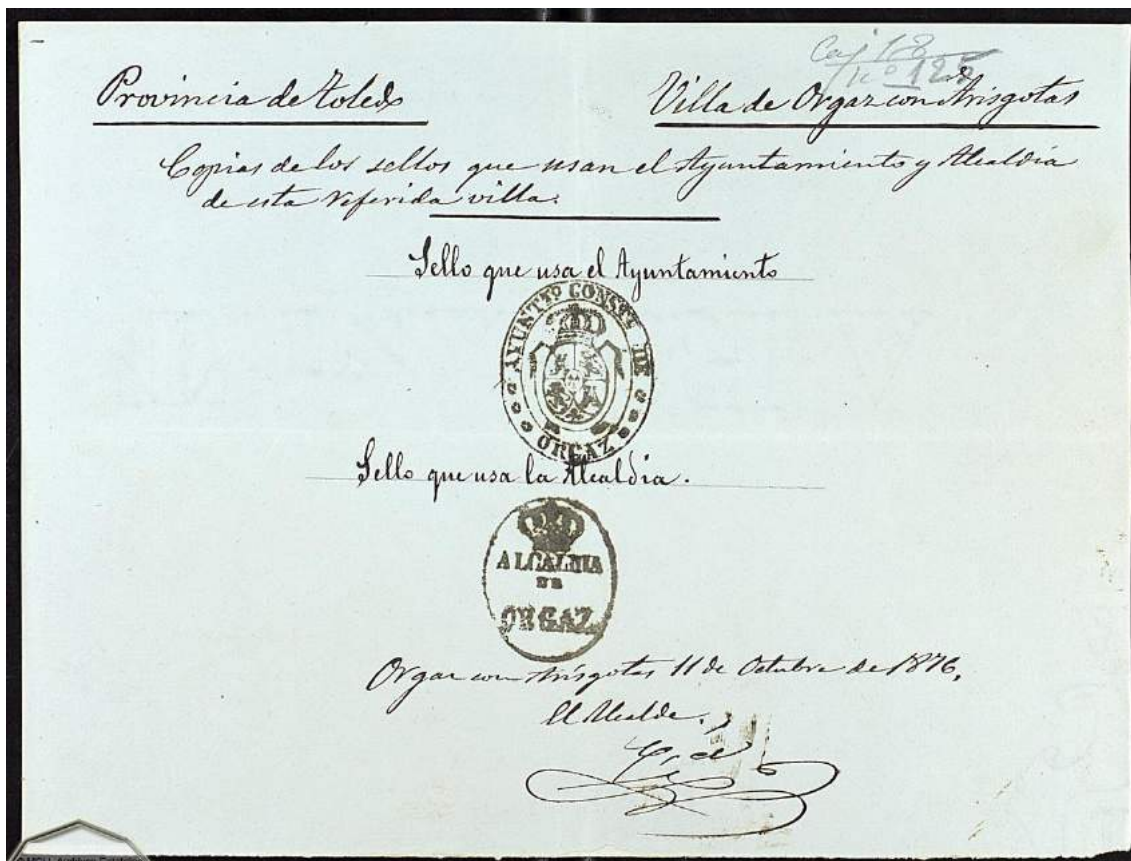 Caj 18
nº 125
Provincia de Toledo
Villa de Orgaz con Arisgotas
Copias de los sellos que usan el Ayuntamiento y Alcaldia
de esta referida villa.
Sello que usa el Ayuntamiento
AYUNTTº CONSTL DE
ORGAZ
Sello que usa la Alcaldia.
ALCALDIA
DE
ORGAZ
Orgaz con Arisgotas 11 de Octubre de 1876.
El Alcalde.